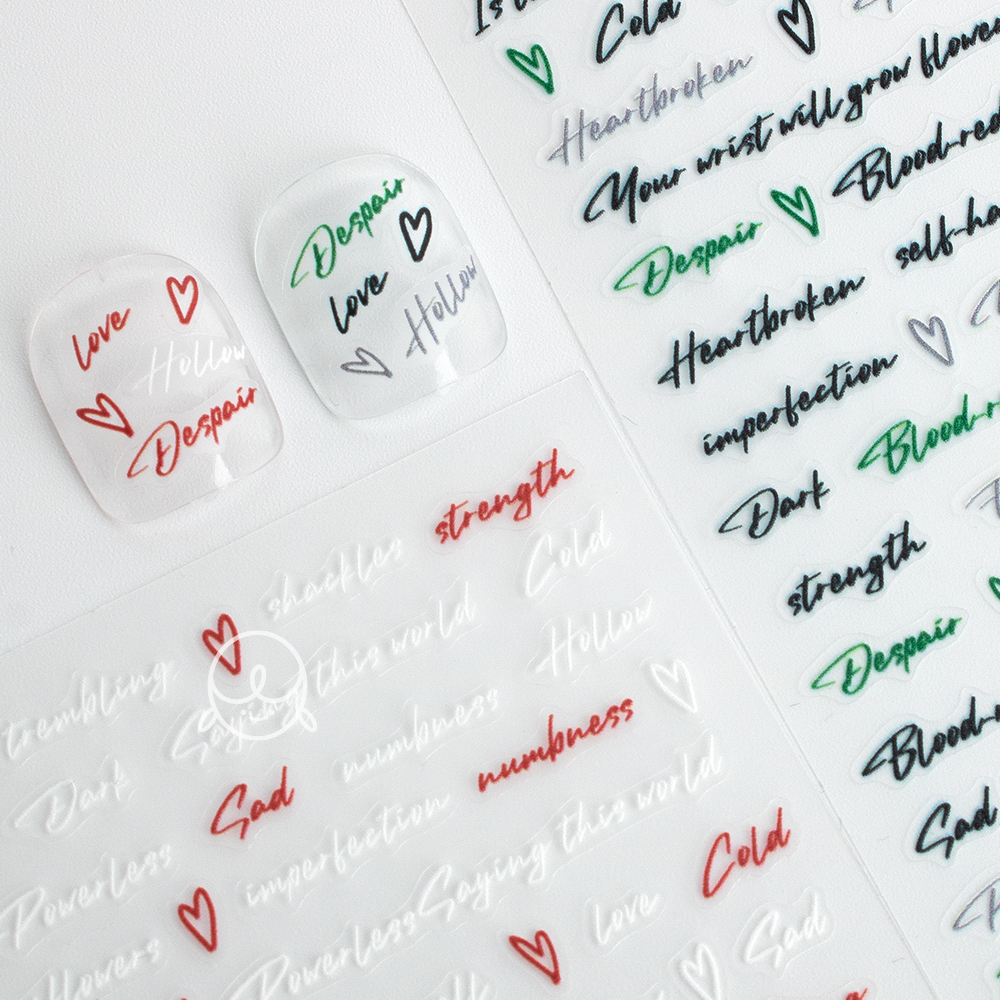 Cold
Heartbroken
Your wrist will grow
Blood-red
Despair
Heartbroken
imperfection
Dark
strength
Despair
Sad
Despair
love
Hollow
love
Hollow
Despair
strength
shackles
Cold
trembling
Saying this world
Hollow
Dark
numbness
numbness
Sad
Powerless
imperfection
Saying this world
Cold
flowers
Powerless
love
Sad